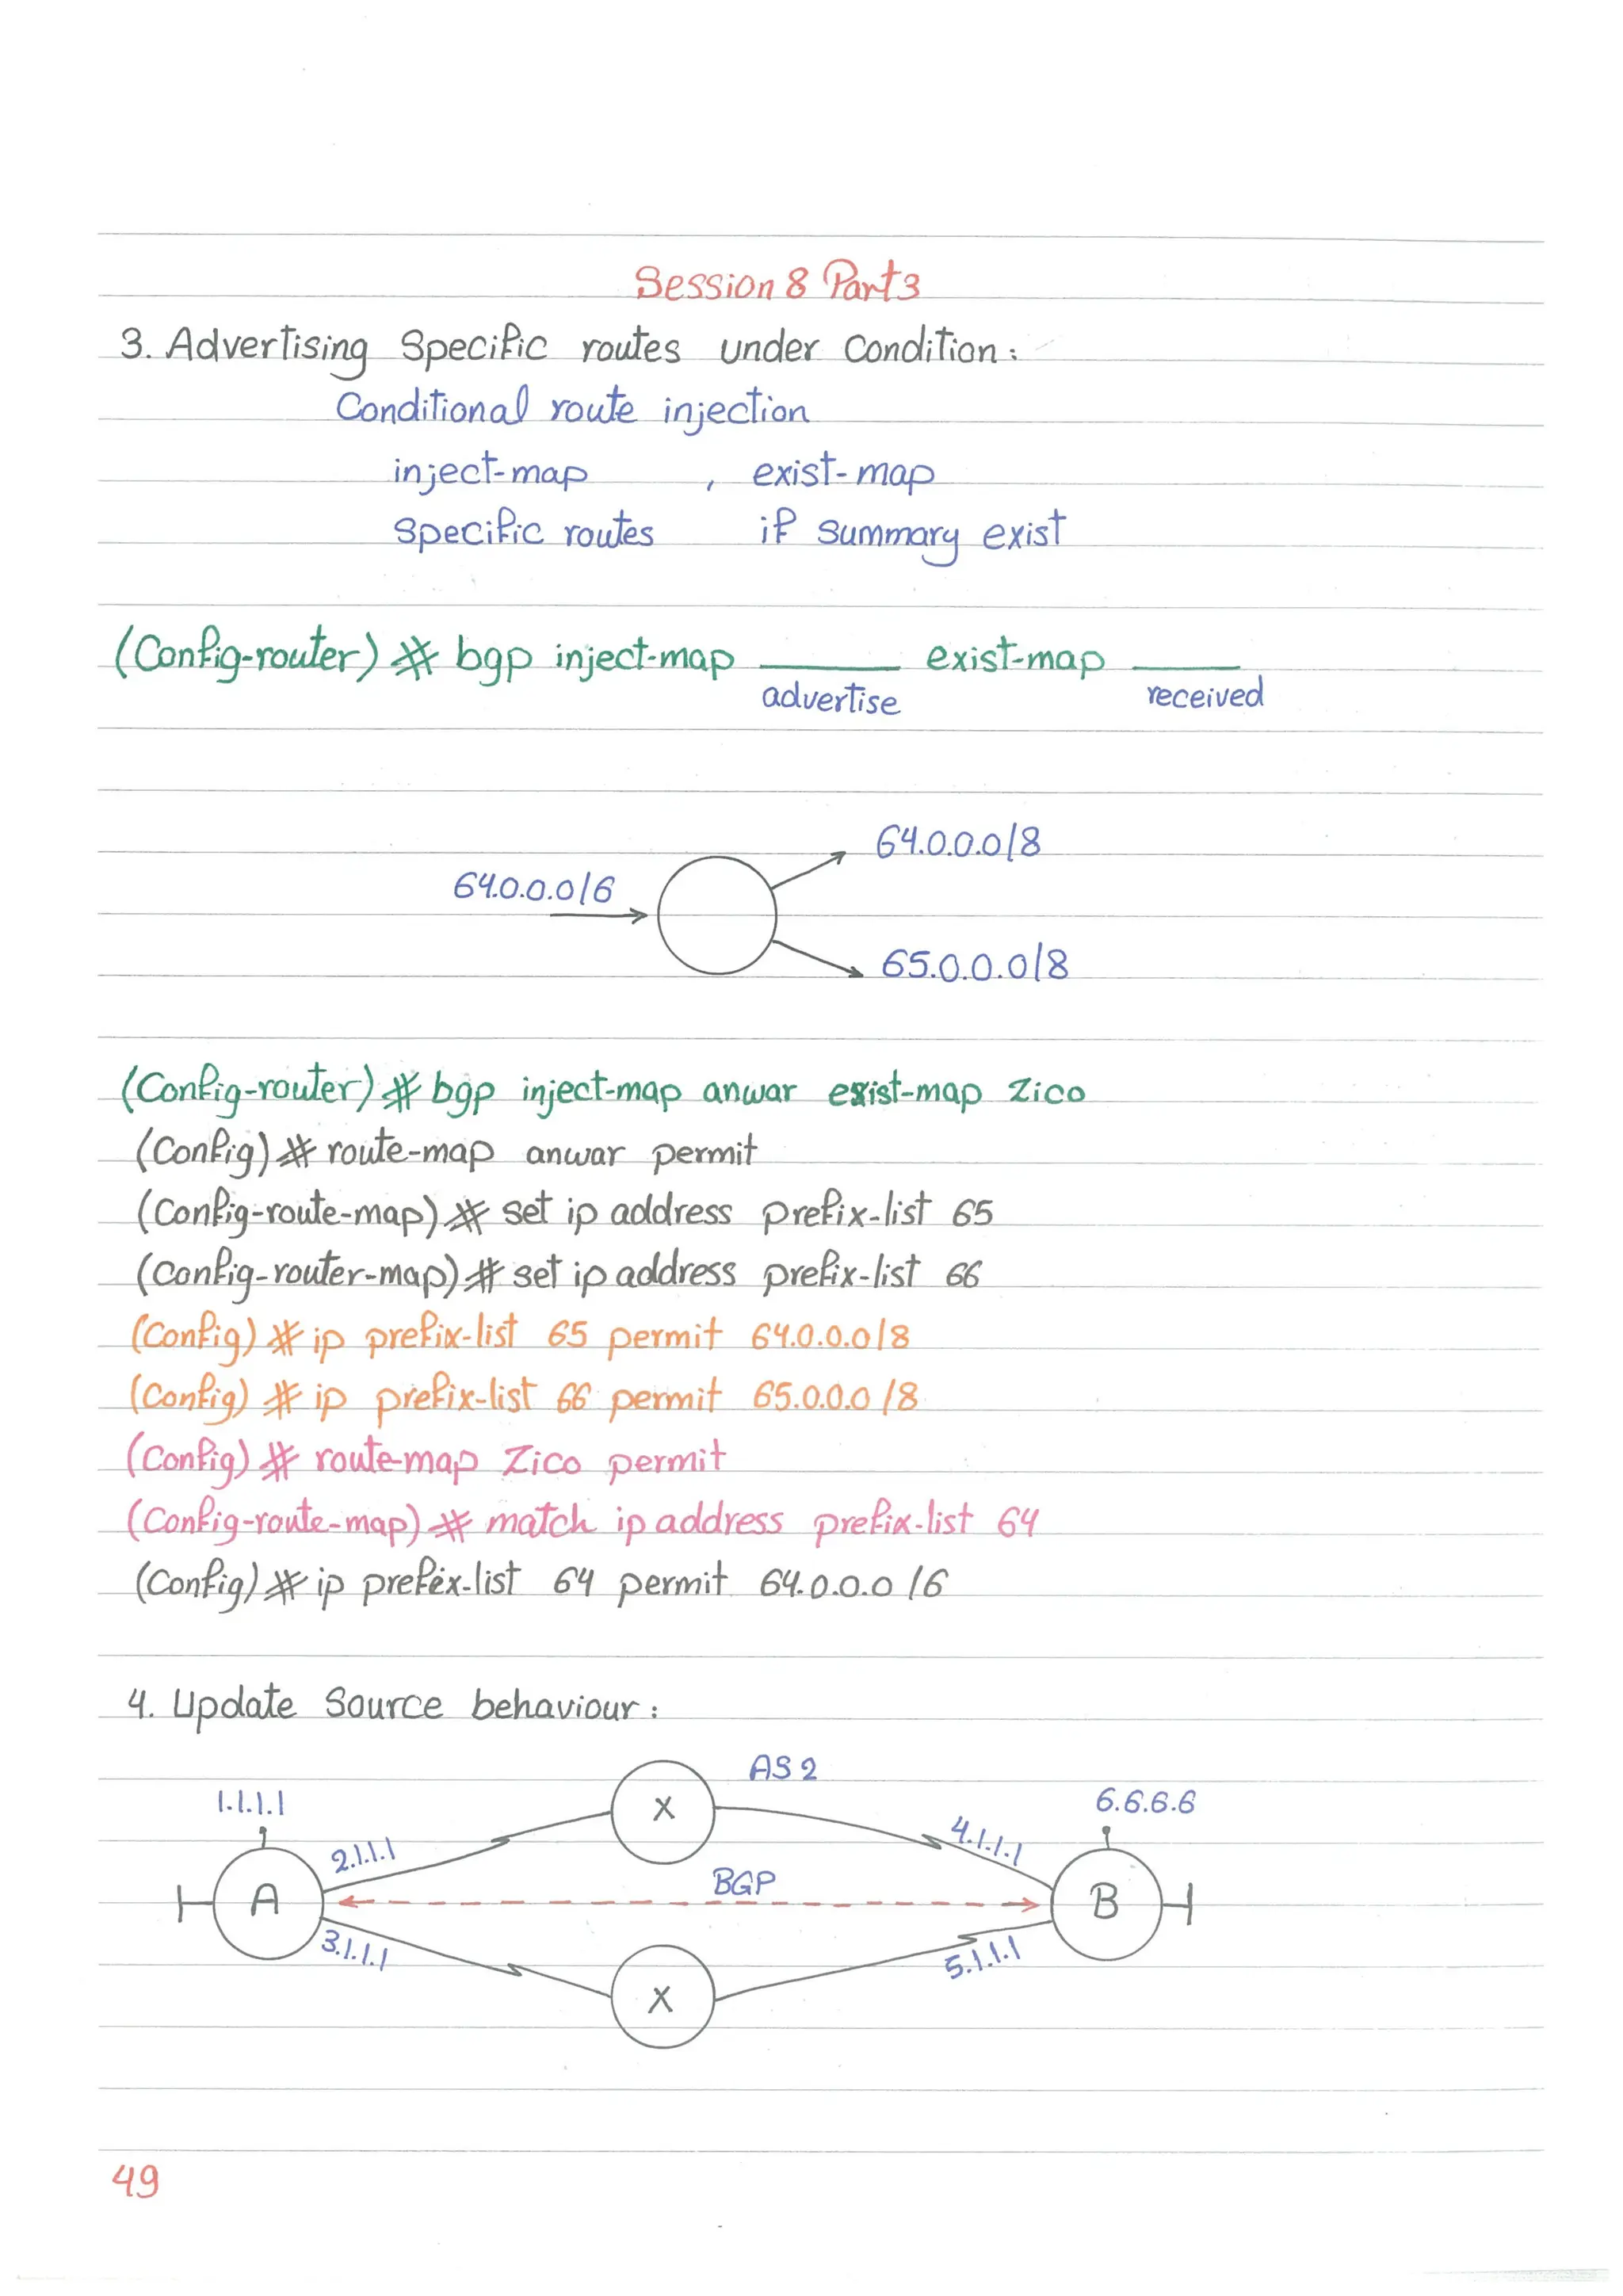 Session 8 Part3
3. Advertising Specific routes under Condition:
Conditional route injection
inject-map , exist-map
Specific routes if Summary exist
(Config-router)# bgp inject-map ______ exist-map ______
advertise received
64.0.0.0/8
64.0.0.0/6
65.0.0.0/8
(Config-router)# bgp inject-map anwar exist-map Zico
(Config)# route-map anwar permit
(Config-route-map)# set ip address prefix-list 65
(Config-router-map)# set ip address prefix-list 66
(Config)# ip prefix-list 65 permit 64.0.0.0/8
(Config)# ip prefix-list 66 permit 65.0.0.0/8
(Config)# route-map Zico permit
(Config-route-map)# match ip address prefix-list 64
(Config)# ip prefix-list 64 permit 64.0.0.0/6
4. Update Source behaviour:
AS 2
1.1.1.1 X 6.6.6.6
2.1.1.1 4.1.1.1
A BGP B
3.1.1.1 5.1.1.1
X
49